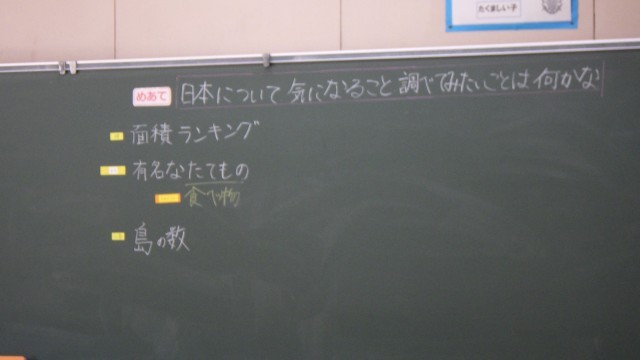 たくましい子
めあて 日本について 気になること 調べてみたいことは 何かな
面積ランキング
有名なたてもの
食べ物
島の数